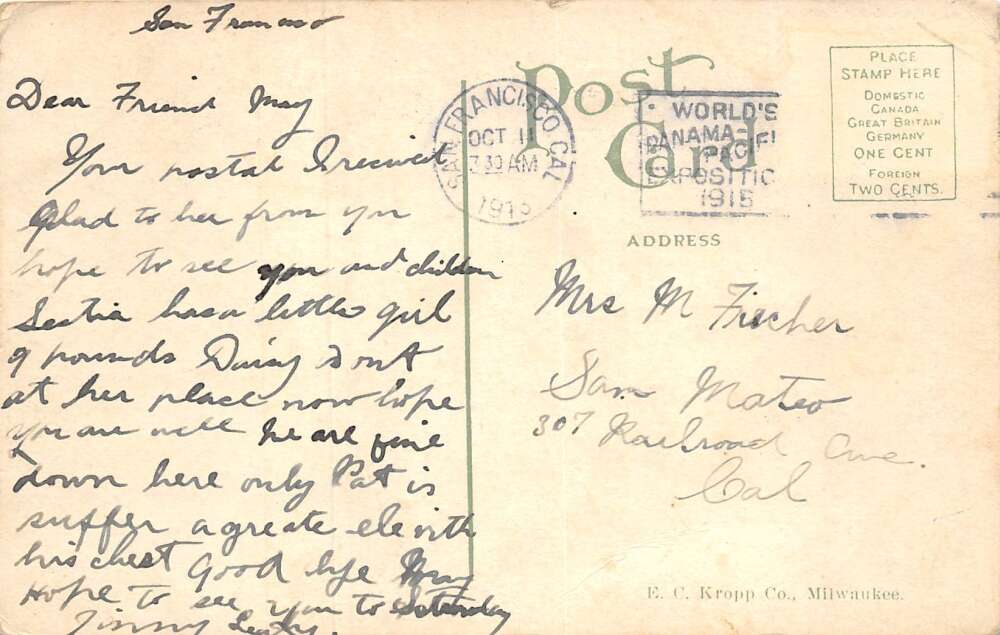 San Francisco
Dear Friend May
Your postal I recived
Glad to her from you
hope to see you and children
has a little girl
9 pounds Daisy isnt
at her place now hope
you are well we are fine
down here only Pat is
suffer a greate ele with
his chest Good bye May
Hope to see you to Saturday
Post Card
SAN FRANCISCO, CAL
OCT 11
7 30 AM
1913
WORLD'S
PANAMA-
PACIFI
EXPOSITIO
1915
PLACE
STAMP HERE
DOMESTIC
CANADA
GREAT BRITAIN
GERMANY
ONE CENT
FOREIGN
TWO CENTS.
ADDRESS
Mrs M Fischer
San Mateo
307 Railroad Ave.
Cal
E. C. Kropp Co., Milwaukee.